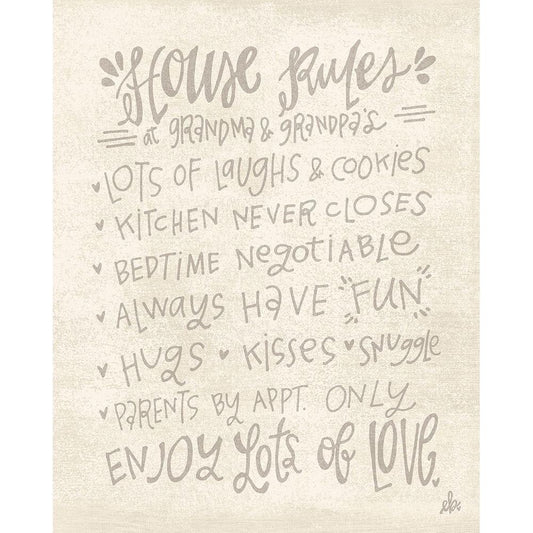 House Rules
at GRANDMA & GRANDPA'S
LOTS OF LAUGHS & COOKIES
KITCHEN NEVER CLOSES
BEDTIME NEGOTIABLE
ALWAYS HAVE FUN
HUGS ♥ KISSES ♥ SNUGGLE
PARENTS BY APPT. ONLY
ENJOY Lots of LOVE.
eb.